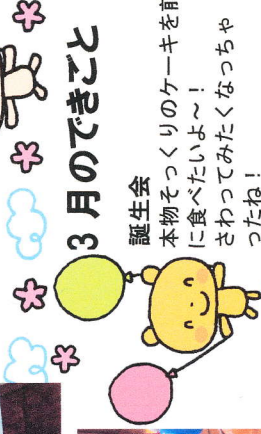 3 月のできごと
誕生会
本物そっくりのケーキを前
に食べたいよ～！
さわってみたくなっちゃ
ったね！